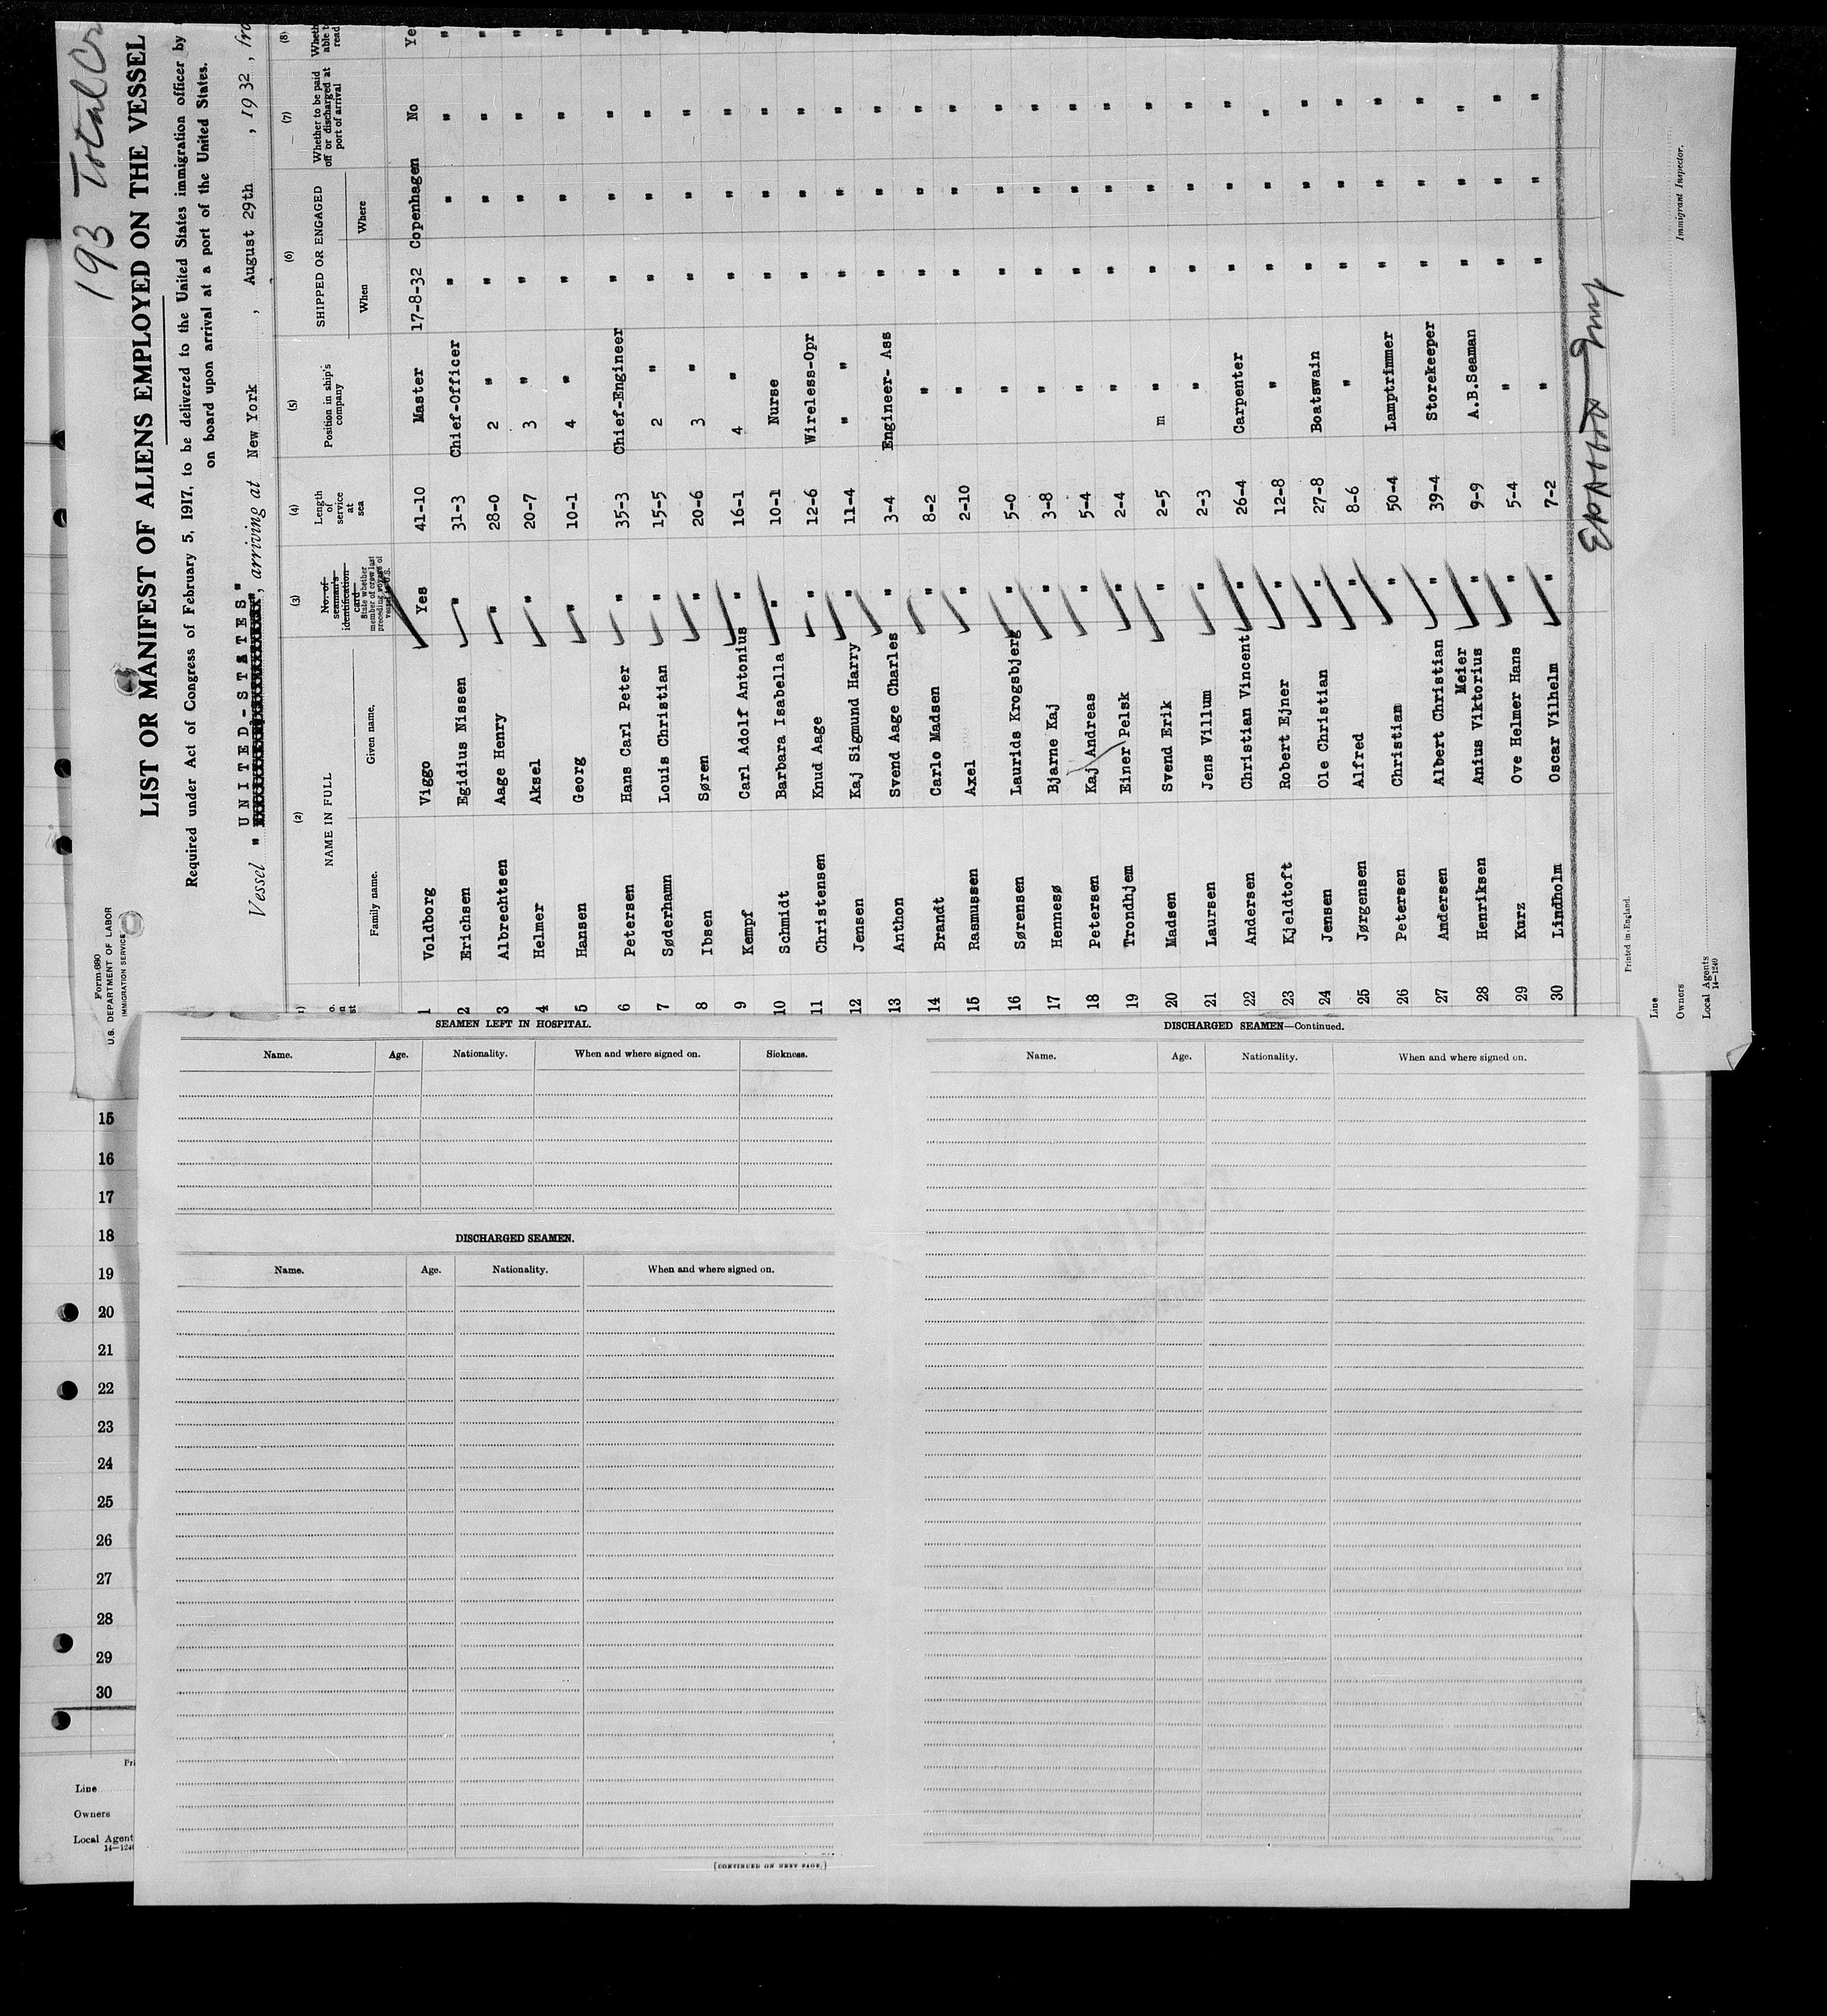 193 Total
Form 680
U.S. DEPARTMENT OF LABOR
IMMIGRATION SERVICE
LIST OR MANIFEST OF ALIENS EMPLOYED ON THE VESSEL
Required under Act of Congress of February 5, 1917, to be delivered to the United States immigration officer by
on board upon arrival at a port of the United States.
Vessel "UNITED-STATES", arriving at New York , August 29th , 1932 , fro
(2) (3) (4) (5) (6) (7) (8)
NAME IN FULL
Family name. Given name.
No. of seaman's identification card
State whether member of crew last preceding voyage of vessel to U.S.
Length of service at sea
Position in ship's company
SHIPPED OR ENGAGED
When Where
Whether to be paid off or discharged at port of arrival
Wheth able t read
1 Voldborg Viggo Yes 41-10 Master 17-8-32 Copenhagen No Ye
2 Erichsen Egidius Nissen " 31-3 Chief-Officer " " " "
3 Albrechtsen Aage Henry " 28-0 2 " " " " "
4 Helmer Aksel " 20-7 3 " " " " "
5 Hansen Georg " 10-1 4 " " " " "
6 Petersen Hans Carl Peter " 35-3 Chief-Engineer " " " "
7 Søderhamn Louis Christian " 15-5 2 " " " " "
8 Ibsen Søren " 20-6 3 " " " " "
9 Kempf Carl Adolf Antonius " 16-1 4 " " " "
10 Schmidt Barbara Isabella " 10-1 Nurse " " "
11 Christensen Knud Aage " 12-6 Wireless-Opr " " "
12 Jensen Kaj Sigmund Harry " 11-4 " " " " "
13 Anthon Svend Aage Charles " 3-4 Engineer- Ass " " "
14 Brandt Carlo Madsen " 8-2 " " " "
15 Rasmussen Axel " 2-10 " " " "
16 Sørensen Laurids Krogsbjerg " 5-0 " " " "
17 Hennesø Bjarne Kaj " 3-8 " " " "
18 Petersen Kaj Andreas " 5-4 " " " "
19 Trondhjem Einer Pelsk " 2-4 " " " "
20 Madsen Svend Erik " 2-5 m " " " "
21 Laursen Jens Villum " 2-3 " " " "
22 Andersen Christian Vincent " 26-4 Carpenter " " "
23 Kjeldtoft Robert Ejner " 12-8 " " " "
24 Jensen Ole Christian " 27-8 Boatswain " " "
25 Jørgensen Alfred " 8-6 " " " "
26 Petersen Christian " 50-4 Lamptrimmer " " "
27 Andersen Albert Christian " 39-4 Storekeeper " " "
Meier
28 Henriksen Anius Viktorius " 9-9 A.B.Seaman " " "
29 Kurz Ove Helmer Hans " 5-4 " " " "
30 Lindholm Oscar Vilhelm " 7-2 " " " "
Printed in England.
Line
Owners
Local Agents
14-1240
Immigrant Inspector.
SEAMEN LEFT IN HOSPITAL.
Name. Age. Nationality. When and where signed on. Sickness.
DISCHARGED SEAMEN.
Name. Age. Nationality. When and where signed on.
[CONTINUED ON NEXT PAGE.]
DISCHARGED SEAMEN—Continued.
Name. Age. Nationality. When and where signed on.
15
16
17
18
19
20
21
22
23
24
25
26
27
28
29
30
Pri
Line
Owners
Local Agent
14-124